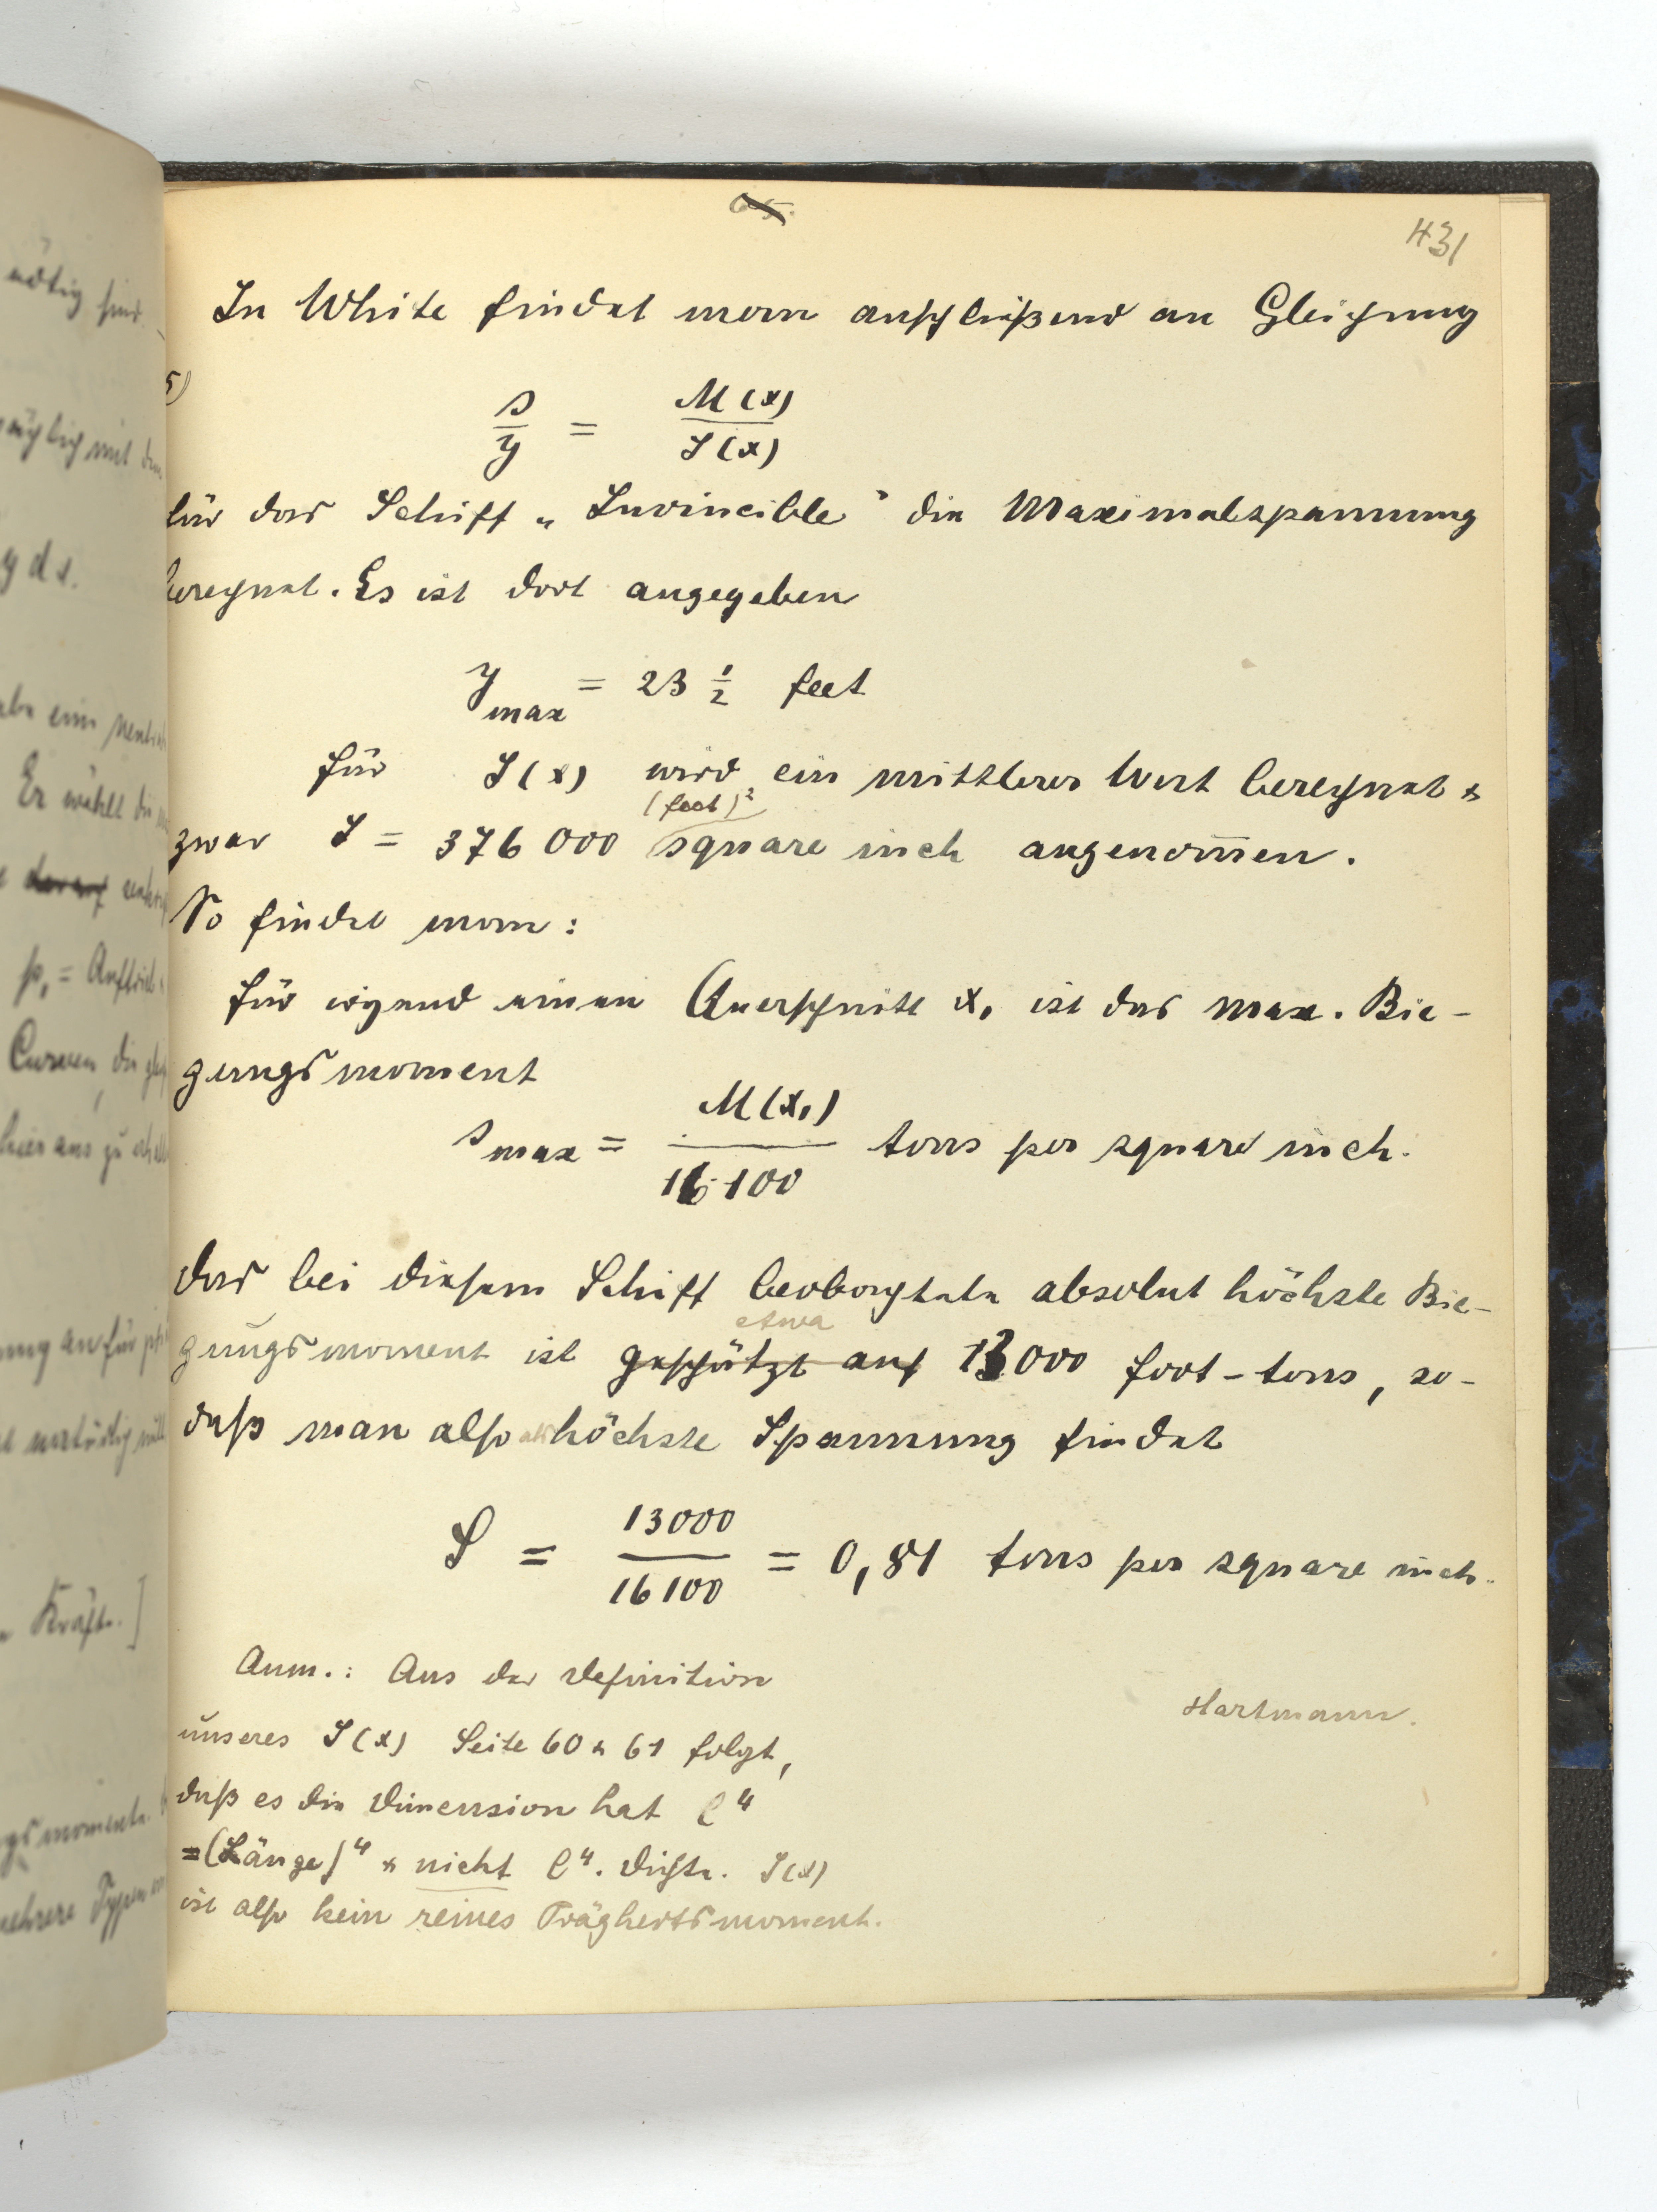 65.
431
In White findet man anschließend an Gleichung
5)
s/y = M(x)/J(x)
für das Schiff „Invincible" die Maximalspannung
berechnet. Es ist dort angegeben
y max = 23 1/2 feet
für J(x) wird ein mittlerer Wert berechnet &
(feet)²
zwar J = 376 000 square inch angenom̅en.
So findet man:
für irgend einen Querschnitt x₁ ist das max. Bie-
gungsmoment
s max = M(x₁)/16 100 tons per square inch.
das bei diesem Schiff beobachtete absolut höchste Bie-
etwa
gungsmoment ist geschätzt auf 13000 foot-tons, so-
daß man also als höchste Spannung findet
S = 13000/16100 = 0,81 tons per square inch.
Anm.: Aus der Definition
unseres J(x) Seite 60 & 61 folgt,
daß es die Dimension hat l⁴
=(Länge)⁴ & nicht l⁴. Dichte. J(x)
ist also kein reines Trägheitsmoment.
Hartmann.
nötig sind.
y dx.
Er wählt die
p₁ = Auftrieb
Curven, die
hieraus zu
Kräfte.]
mehrere Typen